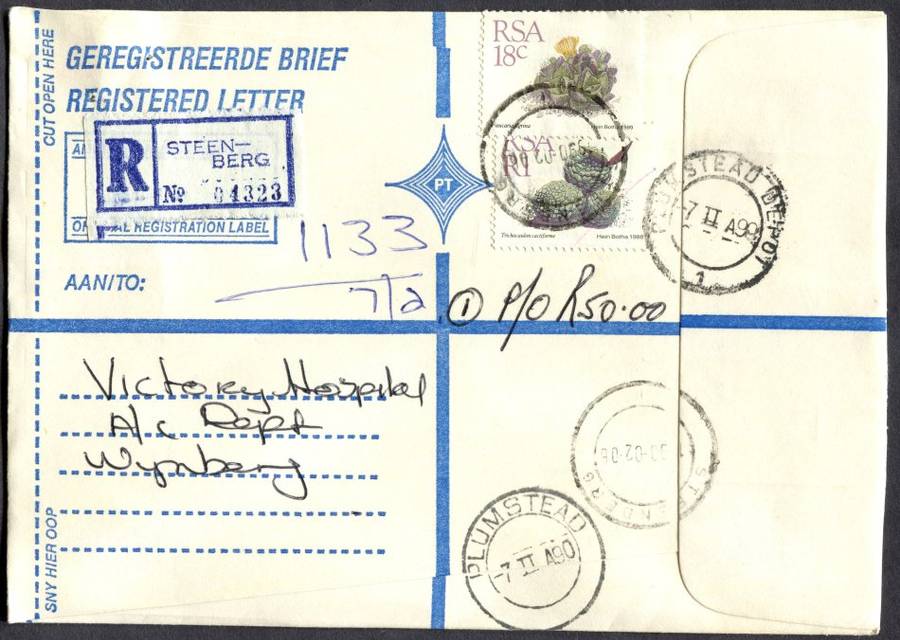 CUT OPEN HERE
GEREGISTREERDE BRIEF
REGISTERED LETTER
R
STEEN-
BERG
No 04323
OFFICIAL REGISTRATION LABEL
AAN/TO:
1133
7/2
PT
RSA
18c
Hein Botha 1988
RSA
R1
Hein Botha 1988
1990-02-06
PLUMSTEAD DEPOT
-7 II A90
1
① P/O R50.00
Victory Hospital
A/c Dept
Wynberg
SNY HIER OOP
STEENBERG
90-02-06
PLUMSTEAD
-7 II A90